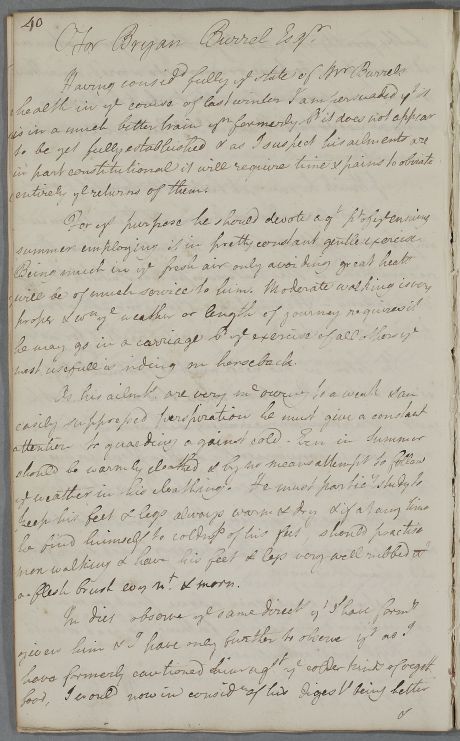 40
For Bryan Burrel Esqr.
Having considd fully ye state of Mr Burrels
health in ye course of last winter I am persuaded yt it
is in a much better train yn formerly bt it does not appear
to be yet fully established & as I suspect his ailments are
in part constitutional it will require time & pains to obviate
entirely ye returns of them.
For ys purpose he should devote a gt pt of ye ensuing
summer employing it in pretty constant gentle exercise
Being much in ye fresh air only avoiding great heats
will be of much service to him. Moderate walking is very
proper & wn ye weather or length of journey requires it
he may go in a carriage bt ye exercise of all others ye
most usefull is riding on horseback.
As his ailmts are very mc owing to a weak & an
easily suppressed perspiration he must give a constant
attention to guarding against cold. Even in Summer
should be warmly cloathed & by no means attempt to follow
ye weather in his cloathing. He must particly study to
keep his feet & legs always warm & dry & if at any time
he find himself to coldness of his feet, should practise
more walking & have his feet & legs very well rubbed wt
a flesh brush evry nt. & morn.
In diet observe ye same direct yt I have formly
given him & I have only further to observe yt as I
have formerly cautioned him agst ye colder kinds of veget
food, I would now in considn of his digestn being better
&